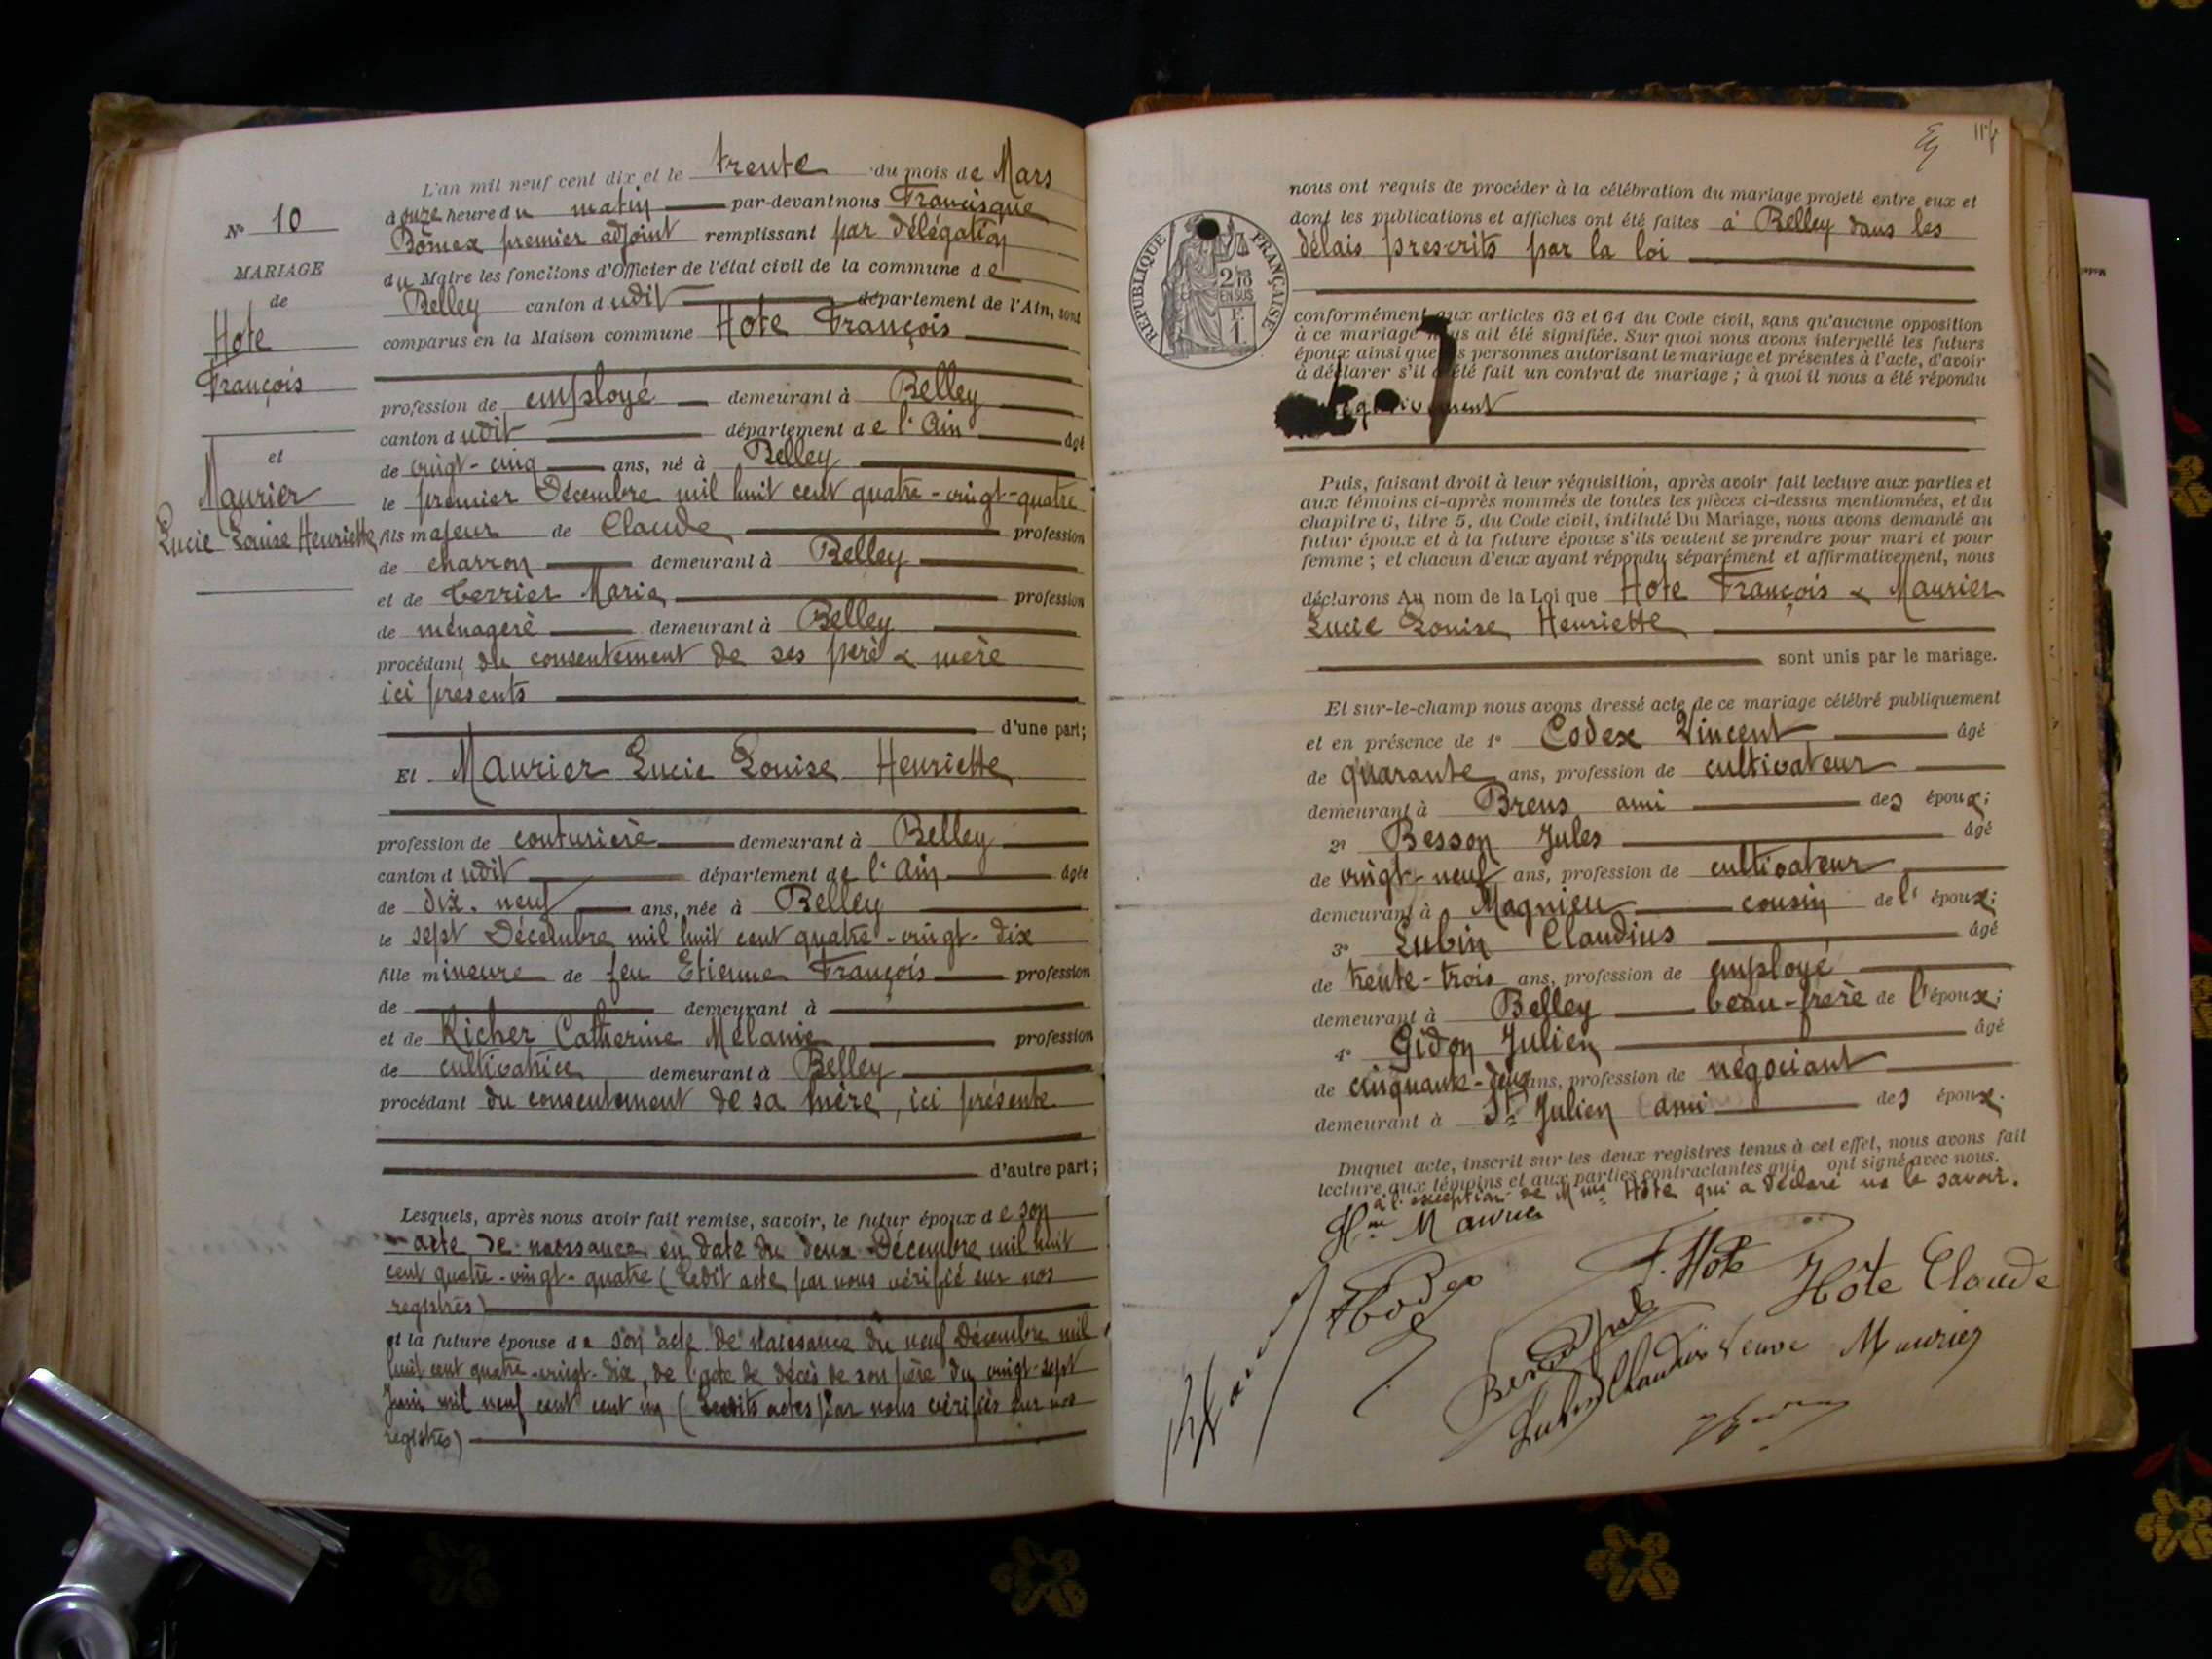 N° 10
MARIAGE
de
Hote
François
et
Maurier
Lucie Louise Henriette
L'an mil neuf cent dix et le trente du mois de Mars
à onze heure du matin par-devant nous Francisque
Bômex premier adjoint remplissant par délégation
du Maire les fonctions d'Officier de l'état civil de la commune de
Belley canton dudit département de l'Ain, sont
comparus en la Maison commune Hote François
profession de employé demeurant à Belley
canton dudit département de l'Ain âgé
de vingt-cinq ans, né à Belley
le premier Décembre mil huit cent quatre-vingt-quatre
fils majeur de Claude profession
de charron demeurant à Belley
et de Terrier Marie profession
de ménagère demeurant à Belley
procédant du consentement de ses père & mère
ici présents
d'une part;
Et Maurier Lucie Louise Henriette
profession de couturière demeurant à Belley
canton dudit département de l'Ain âgée
de dix-neuf ans, née à Belley
le sept Décembre mil huit cent quatre-vingt-dix
fille mineure de feu Etienne François profession
de demeurant à
et de Richer Catherine Mélanie profession
de cultivatrice demeurant à Belley
procédant du consentement de sa mère, ici présente
d'autre part;
Lesquels, après nous avoir fait remise, savoir, le futur époux de son
acte de naissance en date du deux Décembre mil huit
cent quatre-vingt-quatre (Ledit acte par nous vérifié sur nos
registres)
et la future épouse de son acte de naissance du neuf Décembre mil
huit cent quatre-vingt-dix, de l'acte de décès de son père du vingt-sept
Juin mil neuf cent cinq (Lesdits actes par nous vérifiés sur nos
registres)
nous ont requis de procéder à la célébration du mariage projeté entre eux et
dont les publications et affiches ont été faites à Belley dans les
délais prescrits par la loi
RÉPUBLIQUE FRANÇAISE
2/10
EN SUS
F.
1
conformément aux articles 63 et 64 du Code civil, sans qu'aucune opposition
à ce mariage nous ait été signifiée. Sur quoi nous avons interpellé les futurs
époux ainsi que les personnes autorisant le mariage et présentes à l'acte, d'avoir
à déclarer s'il a été fait un contrat de mariage; à quoi il nous a été répondu
négativement
Puis, faisant droit à leur réquisition, après avoir fait lecture aux parties et
aux témoins ci-après nommés de toutes les pièces ci-dessus mentionnées, et du
chapitre 6, titre 5, du Code civil, intitulé Du Mariage, nous avons demandé au
futur époux et à la future épouse s'ils veulent se prendre pour mari et pour
femme; et chacun d'eux ayant répondu séparément et affirmativement, nous
déclarons Au nom de la Loi que Hote François & Maurier
Lucie Louise Henriette
sont unis par le mariage.
Et sur-le-champ nous avons dressé acte de ce mariage célébré publiquement
et en présence de 1° Codex Vincent âgé
de quarante ans, profession de cultivateur
demeurant à Brens ami des époux;
2° Besson Jules âgé
de vingt-neuf ans, profession de cultivateur
demeurant à Magnieu cousin de l'époux;
3° Lubin Claudius âgé
de trente-trois ans, profession de employé
demeurant à Belley beau-frère de l'époux;
4° Gidon Julien âgé
de cinquante-deux ans, profession de négociant
demeurant à St Julien ami des époux.
Duquel acte, inscrit sur les deux registres tenus à cet effet, nous avons fait
lecture aux témoins et aux parties contractantes qui ont signé avec nous.
à l'exception de Mme Hote qui a déclaré ne le savoir.
F. Hote
Hote Claude
Lubin Claudius
Veuve Maurier